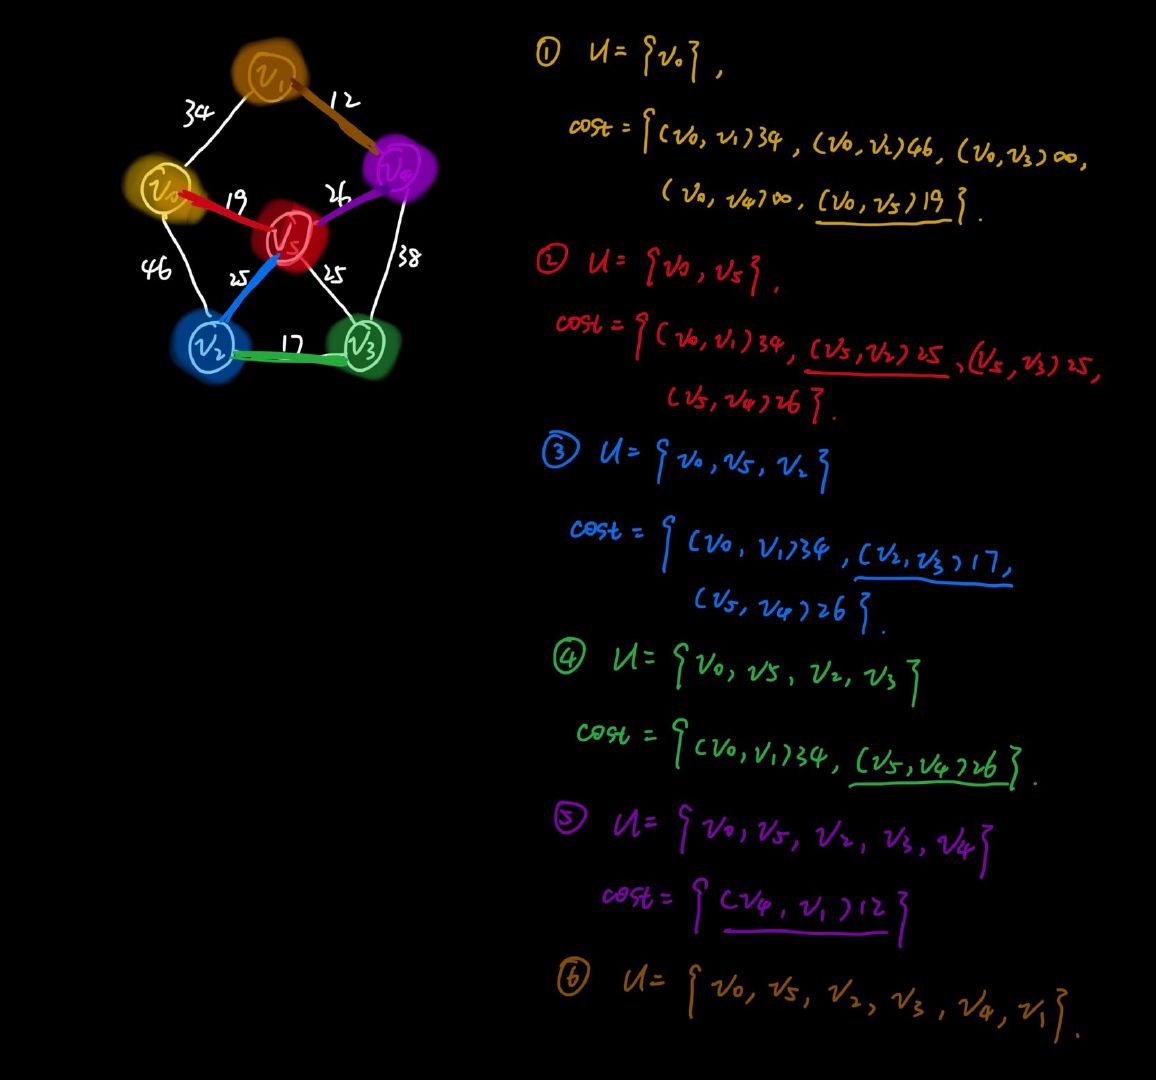 V₁
34
12
V₄
V₀
19
26
V₅
46
25
25
38
V₂
17
V₃
① U = {v₀},
cost = {(v₀, v₁)34, (v₀, v₂)46, (v₀, v₃)∞,
(v₀, v₄)∞, (v₀, v₅)19}.
② U = {v₀, v₅}.
cost = {(v₀, v₁)34, (v₅, v₂)25, (v₅, v₃)25,
(v₅, v₄)26}.
③ U = {v₀, v₅, v₂}
cost = {(v₀, v₁)34, (v₂, v₃)17,
(v₅, v₄)26}.
④ U = {v₀, v₅, v₂, v₃}
cost = {(v₀, v₁)34, (v₅, v₄)26}.
⑤ U = {v₀, v₅, v₂, v₃, v₄}
cost = {(v₄, v₁)12}
⑥ U = {v₀, v₅, v₂, v₃, v₄, v₁}.